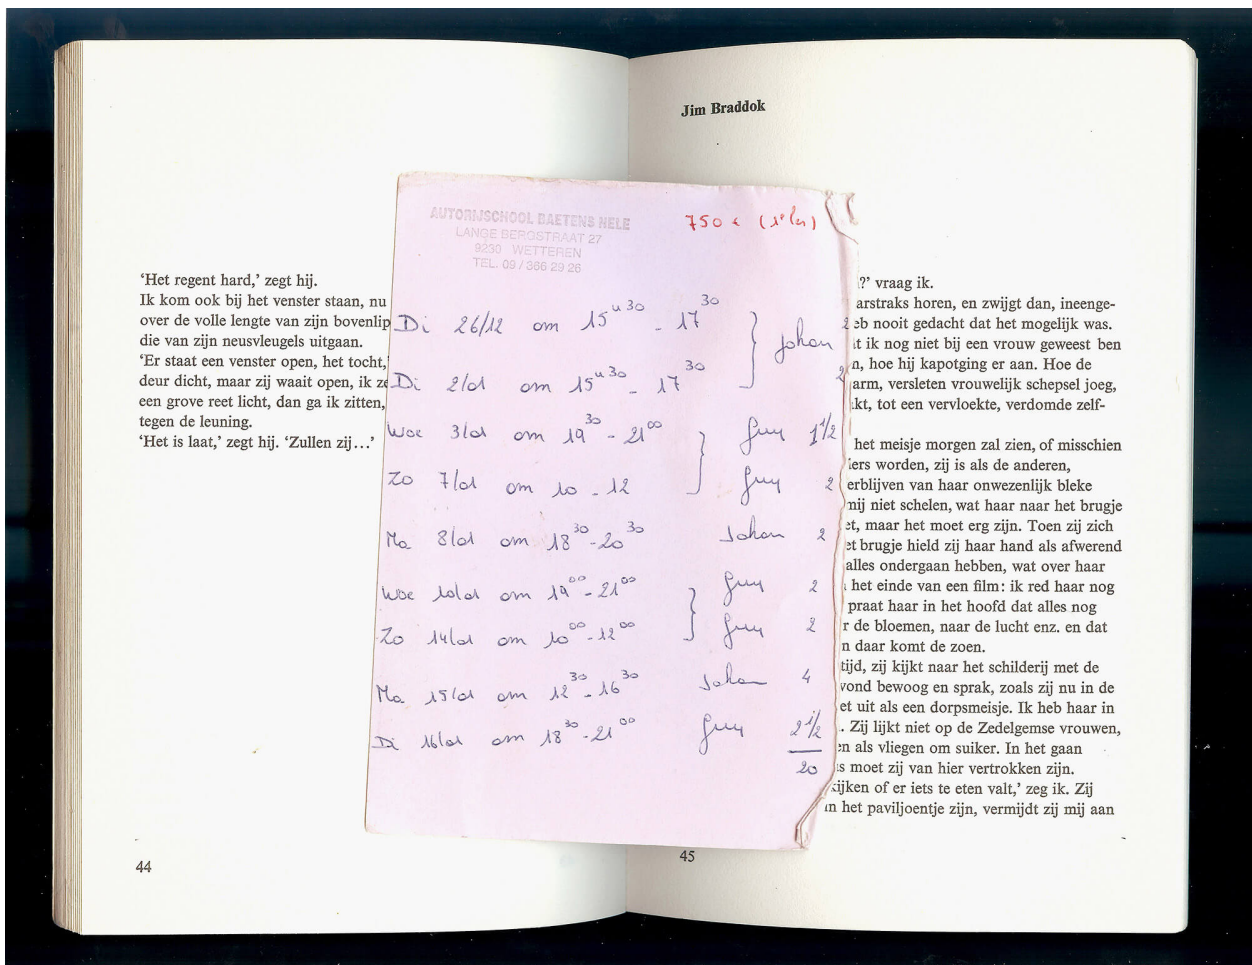 Jim Braddok
‘Het regent hard,’ zegt hij.
Ik kom ook bij het venster staan, nu
over de volle lengte van zijn bovenlip
die van zijn neusvleugels uitgaan.
‘Er staat een venster open, het tocht,
deur dicht, maar zij waait open, ik ze
een grove reet licht, dan ga ik zitten,
tegen de leuning.
‘Het is laat,’ zegt hij. ‘Zullen zij...’
44
AUTORIJSCHOOL BAETENS NELE
LANGE BERGSTRAAT 27
9230 WETTEREN
TEL. 09 / 366 29 26
750 €
Di 26/12 om 15u30 - 17 30 } Johan 2
Di 2/01 om 15u30 - 17 30 2
Woe 3/01 om 19 30 - 21 00 } Guy 1 1/2
Zo 7/01 om 10 - 12 Guy 2
Ma 8/01 om 18 30 - 20 30 Johan 2
Woe 10/01 om 19 00 - 21 00 } Guy 2
Zo 14/01 om 10 00 - 12 00 Guy 2
Ma 15/01 om 12 30 - 16 30 Johan 4
Di 16/01 om 18 30 - 21 00 Guy 2 1/2
20
?’ vraag ik.
arstraks horen, en zwijgt dan, ineenge-
eb nooit gedacht dat het mogelijk was.
t ik nog niet bij een vrouw geweest ben
n, hoe hij kapotging er aan. Hoe de
arm, versleten vrouwelijk schepsel joeg,
kt, tot een vervloekte, verdomde zelf-
het meisje morgen zal zien, of misschien
iers worden, zij is als de anderen,
erblijven van haar onwezenlijk bleke
mij niet schelen, wat haar naar het brugje
et, maar het moet erg zijn. Toen zij zich
et brugje hield zij haar hand als afwerend
alles ondergaan hebben, wat over haar
het einde van een film: ik red haar nog
praat haar in het hoofd dat alles nog
r de bloemen, naar de lucht enz. en dat
n daar komt de zoen.
tijd, zij kijkt naar het schilderij met de
vond bewoog en sprak, zoals zij nu in de
et uit als een dorpsmeisje. Ik heb haar in
. Zij lijkt niet op de Zedelgemse vrouwen,
en als vliegen om suiker. In het gaan
s moet zij van hier vertrokken zijn.
kijken of er iets te eten valt,’ zeg ik. Zij
in het paviljoentje zijn, vermijdt zij mij aan
45